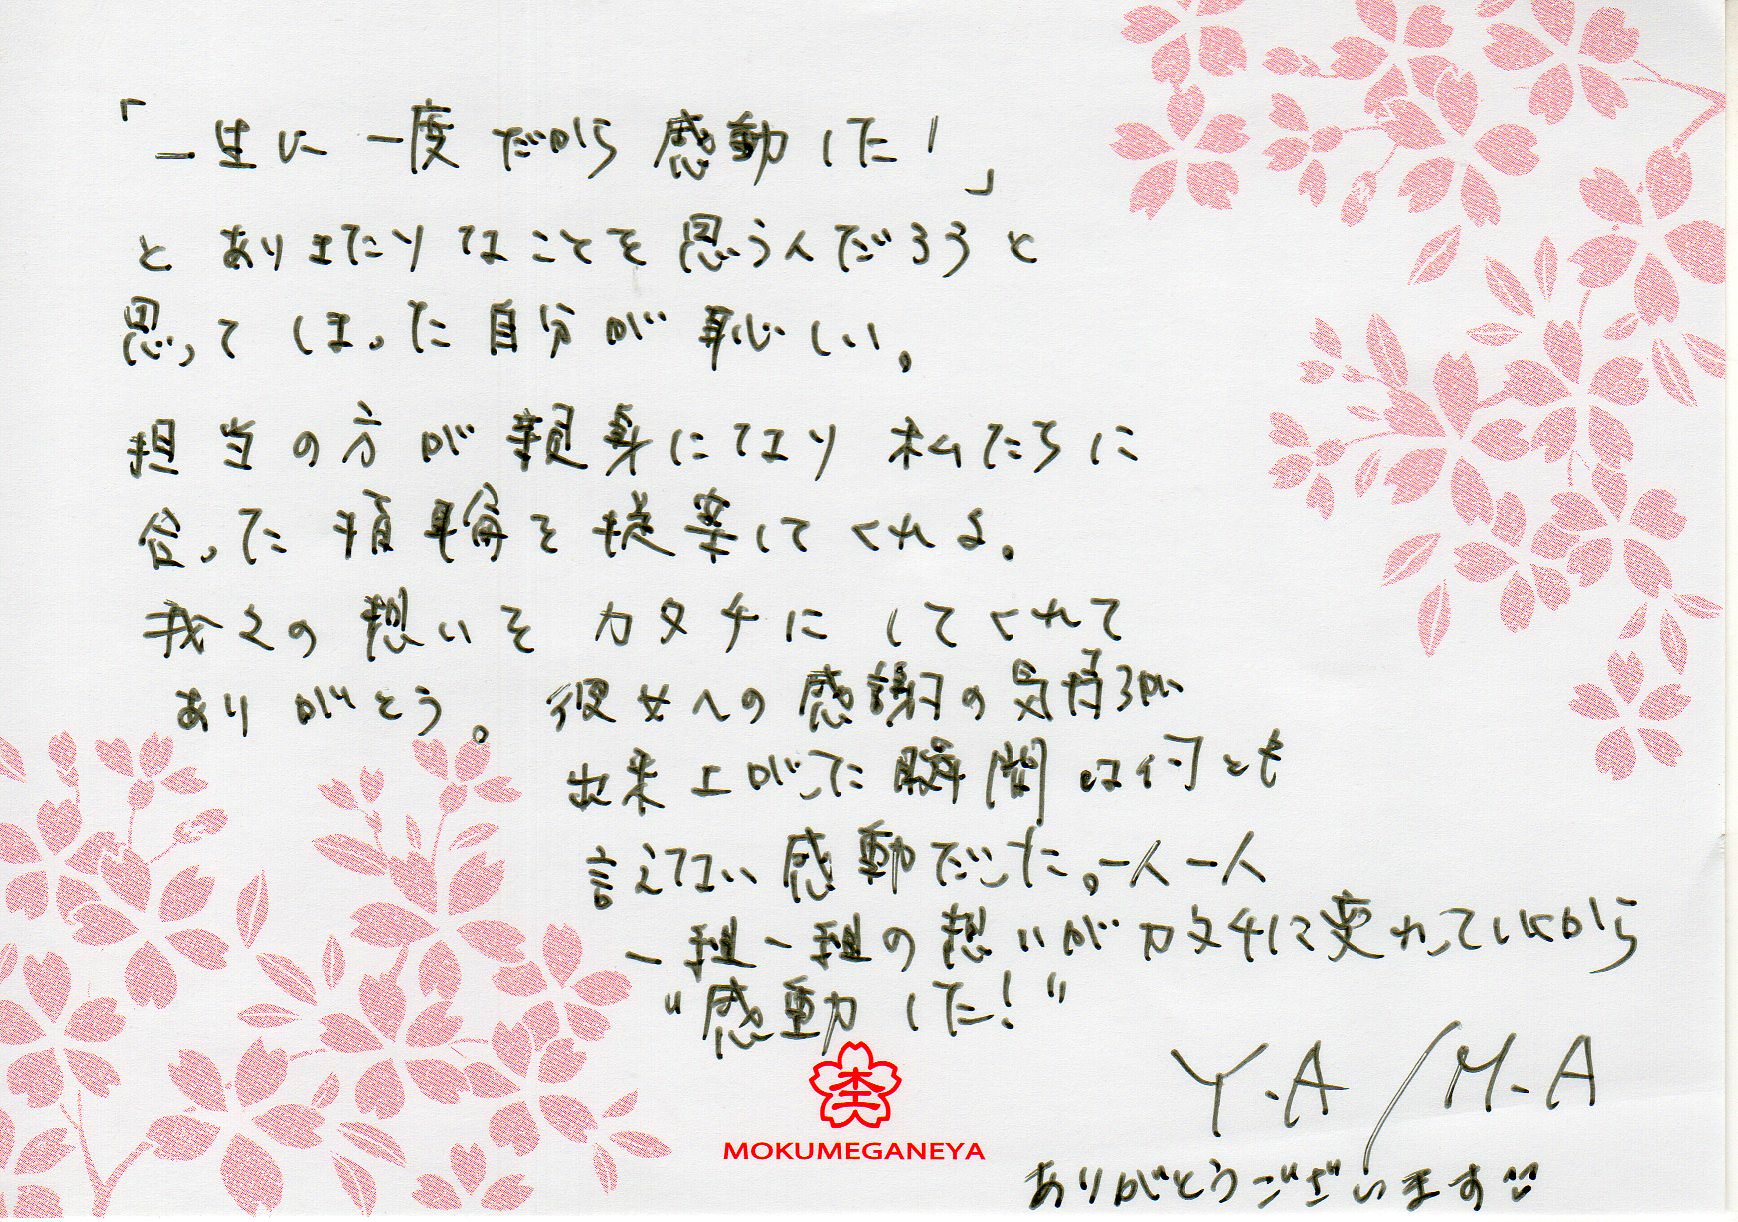 「一生に一度だから感動した!」
とありきたりなことを思うんだろうと
思ってしまった自分が恥しい。
担当の方が親身になり私たちに
合った指輪を提案してくれる。
我々の想いをカタチにしてくれて
ありがとう。彼女への感謝の気持ちが
出来上がった瞬間は何とも
言えない感動だった。一人一人
一組一組の想いがカタチに変わっていくから
"感動した!"
Y.A/M.A
MOKUMEGANEYA
ありがとうございます